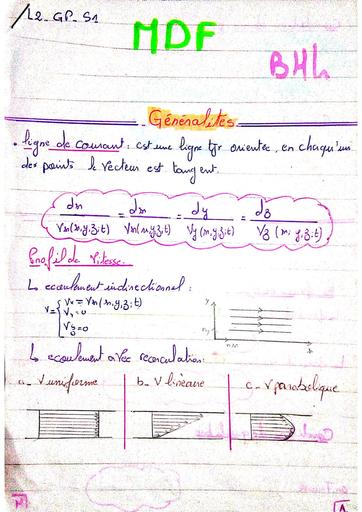 L2_GP_S1
MDF
B4L
Généralités.
• ligne de courant : c'est une ligne tjr orientée, en chaqu'un
des points le vecteur est tangent.
dn/Vn(n,y,z,t) = dn/Vn(n,y,z,t) = dy/Vy(n,y,z,t) = dz/Vz(n,y,z,t)
Profil de Vitesse.
↳ ecoulement unidirectionnel :
V = { Vx = Vn(n,y,z,t)
Vy = 0
Vz = 0
y
x
↳ ecoulement avec recirculation:
a - V uniforme b - V lineaire c - V parabolique